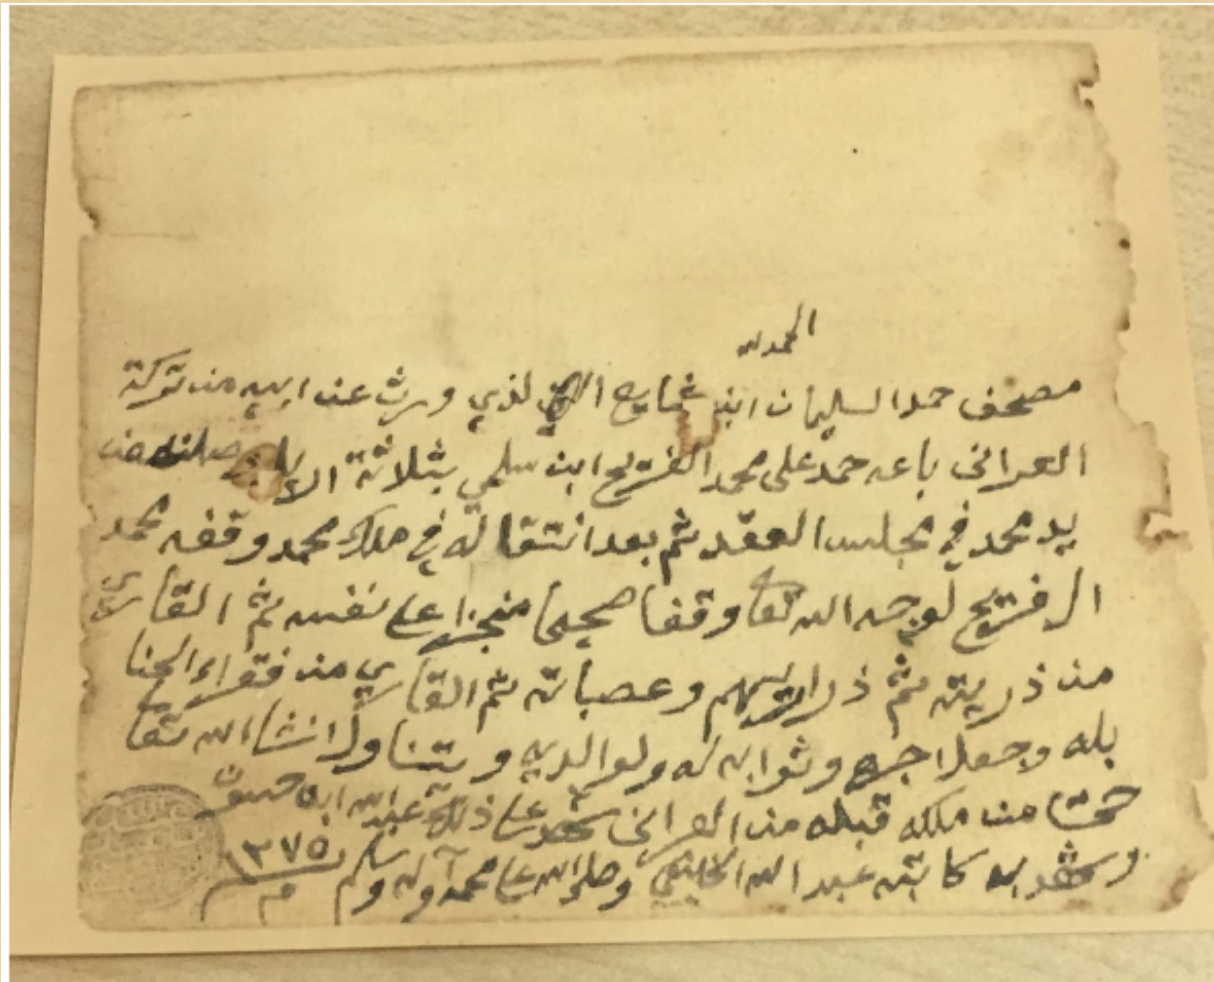 الحمد لله
مصحف حمد السليمان ابن غمايج الذي ورث عن ابيه من تركة
العرانى باعه حمد على محمد الفريح ابن سلمي بثلاثة
يد محمد في مجلس العقد ثم بعد انتقاله في ملك محمد وقفه محمد
الفريح لوجه الله تعا وقفا صحيحا منجزا على نفسه ثم القاري
من ذريته ثم ذراريهم وعصباته ثم القاري من فقراء الحنا
بله وجعل اجره وثوابه له ولوالديه ويتناول انشاالله تعا
حتا من ملكه قبله من العرانى شهد على ذلك عبدالله ابن
وشهد به كاتبه عبد الله وصلى الله على محمد وآله وسلم ٣٧٥